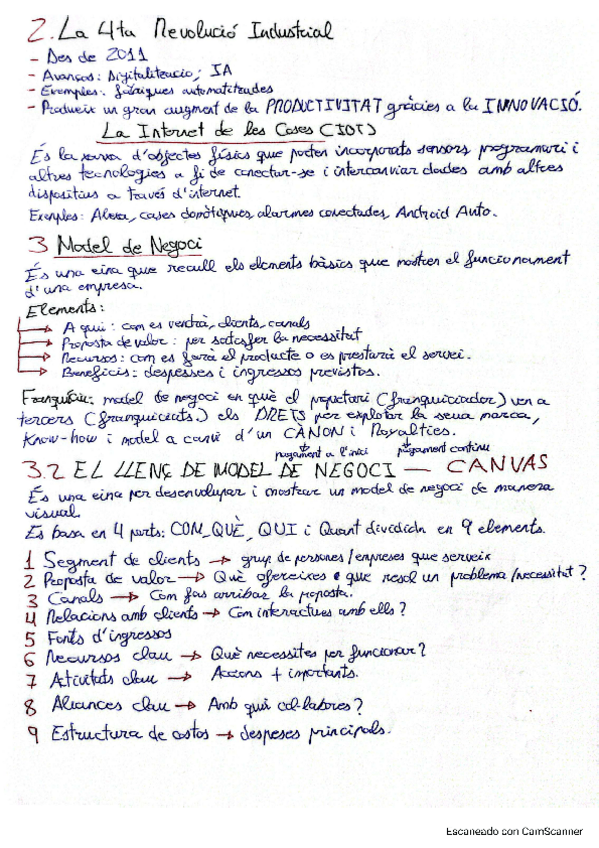 2. La 4ta Revolució Industrial
- Des de 2011
- Avanços: Digitalització; IA
- Exemples: fàbriques automatitzades
- Produeix un gran augment de la PRODUCTIVITAT gràcies a la INNOVACIÓ.
La Internet de les Coses (IOT)
És la xarxa d'objectes físics que porten incorporats sensors, programari i
altres tecnologies a fi de conectar-se i intercanviar dades amb altres
dispositius a través d'internet.
Exemples: Alexa, cases domòtiques, alarmes conectades, Android Auto.
3 Model de Negoci
És una eina que recull els elements bàsics que mostren el funcionament
d'una empresa.
Elements:
A qui: com es vendrà, clients, canals
Proposta de valor: per satisfer la necessitat
Recursos: com es farà el producte o es prestarà el servei.
Beneficis: despesses i ingressos previstos.
Franquícia: model de negoci en què el propietari (franquiciador) ven a
tercers (franquiciats) els DRETS per explotar la seua marca,
Know-how i model a canvi d'un CÀNON i Royalties.
pagament a l'inici pagament continu
3.2 EL LLENÇ DE MODEL DE NEGOCI — CANVAS
És una eina per desenvolupar i mostrar un model de negoci de manera
visual.
Es basa en 4 parts: COM, QUÈ, QUI i Quant dividida en 9 elements.
1 Segment de clients → grup de persones/empreses que serveix
2 Proposta de valor → Què ofereixes e que resol un problema/necessitat?
3 Canals → Com fas arribar la proposta.
4 Relacions amb clients → Com interactues amb ells?
5 Fonts d'ingressos
6 Recursos clau → Què necessites per funcionar?
7 Ativitats clau → Accions + importants.
8 Aliances clau → Amb qui col·labores?
9 Estructura de costos → despeses principals.
Escaneado con CamScanner